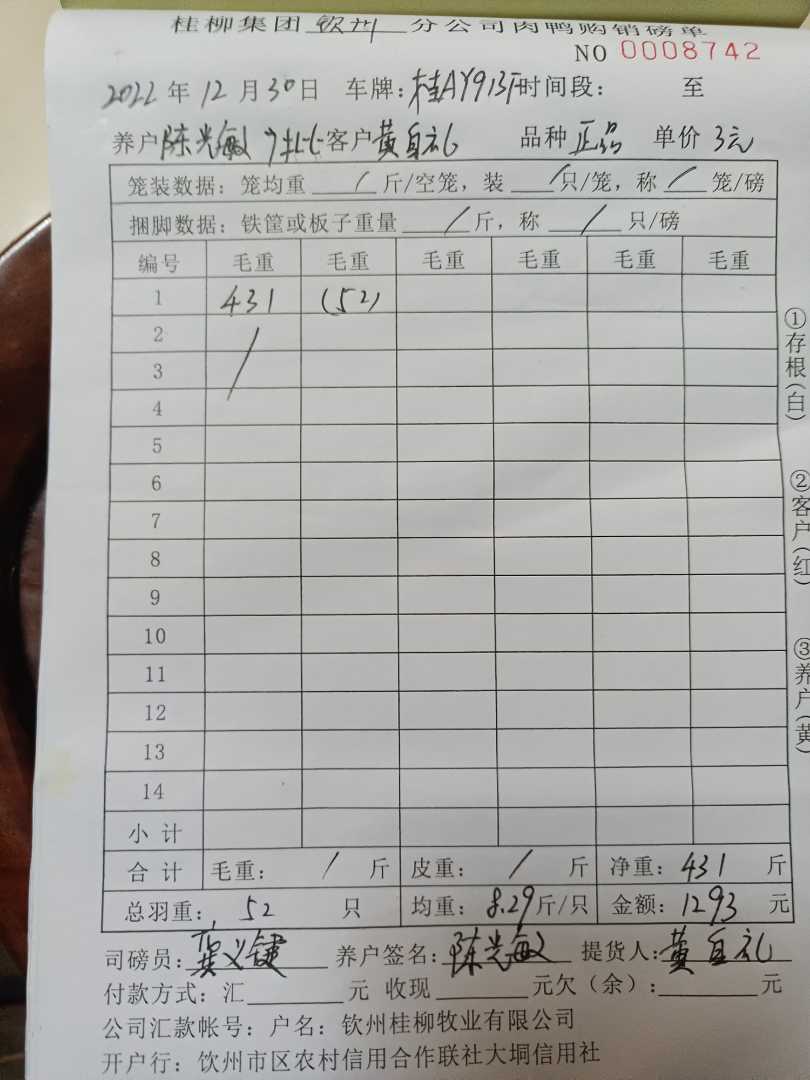 桂柳集团 钦州 分公司肉鸭购销磅单
NO 0008742
2022年12月30日 车牌:桂AY913F 时间段: 至
养户陈光敏 客户黄自礼 品种 正品 单价 3元
笼装数据:笼均重 / 斤/空笼,装 / 只/笼,称 / 笼/磅
捆脚数据:铁筐或板子重量 / 斤,称 / 只/磅
编号 毛重 毛重 毛重 毛重 毛重 毛重
1 431 (52)
2 /
3
4
5
6
7
8
9
10
11
12
13
14
小 计
合 计 毛重: / 斤 皮重: / 斤 净重:431 斤
总羽重: 52 只 均重: 8.29 斤/只 金额:1293 元
司磅员: 养户签名:陈光敏 提货人:黄自礼
付款方式:汇 元 收现 元欠(余): 元
公司汇款帐号:户名:钦州桂柳牧业有限公司
开户行:钦州市区农村信用合作联社大垌信用社
①存根(白)
②客户(红)
③养户(黄)